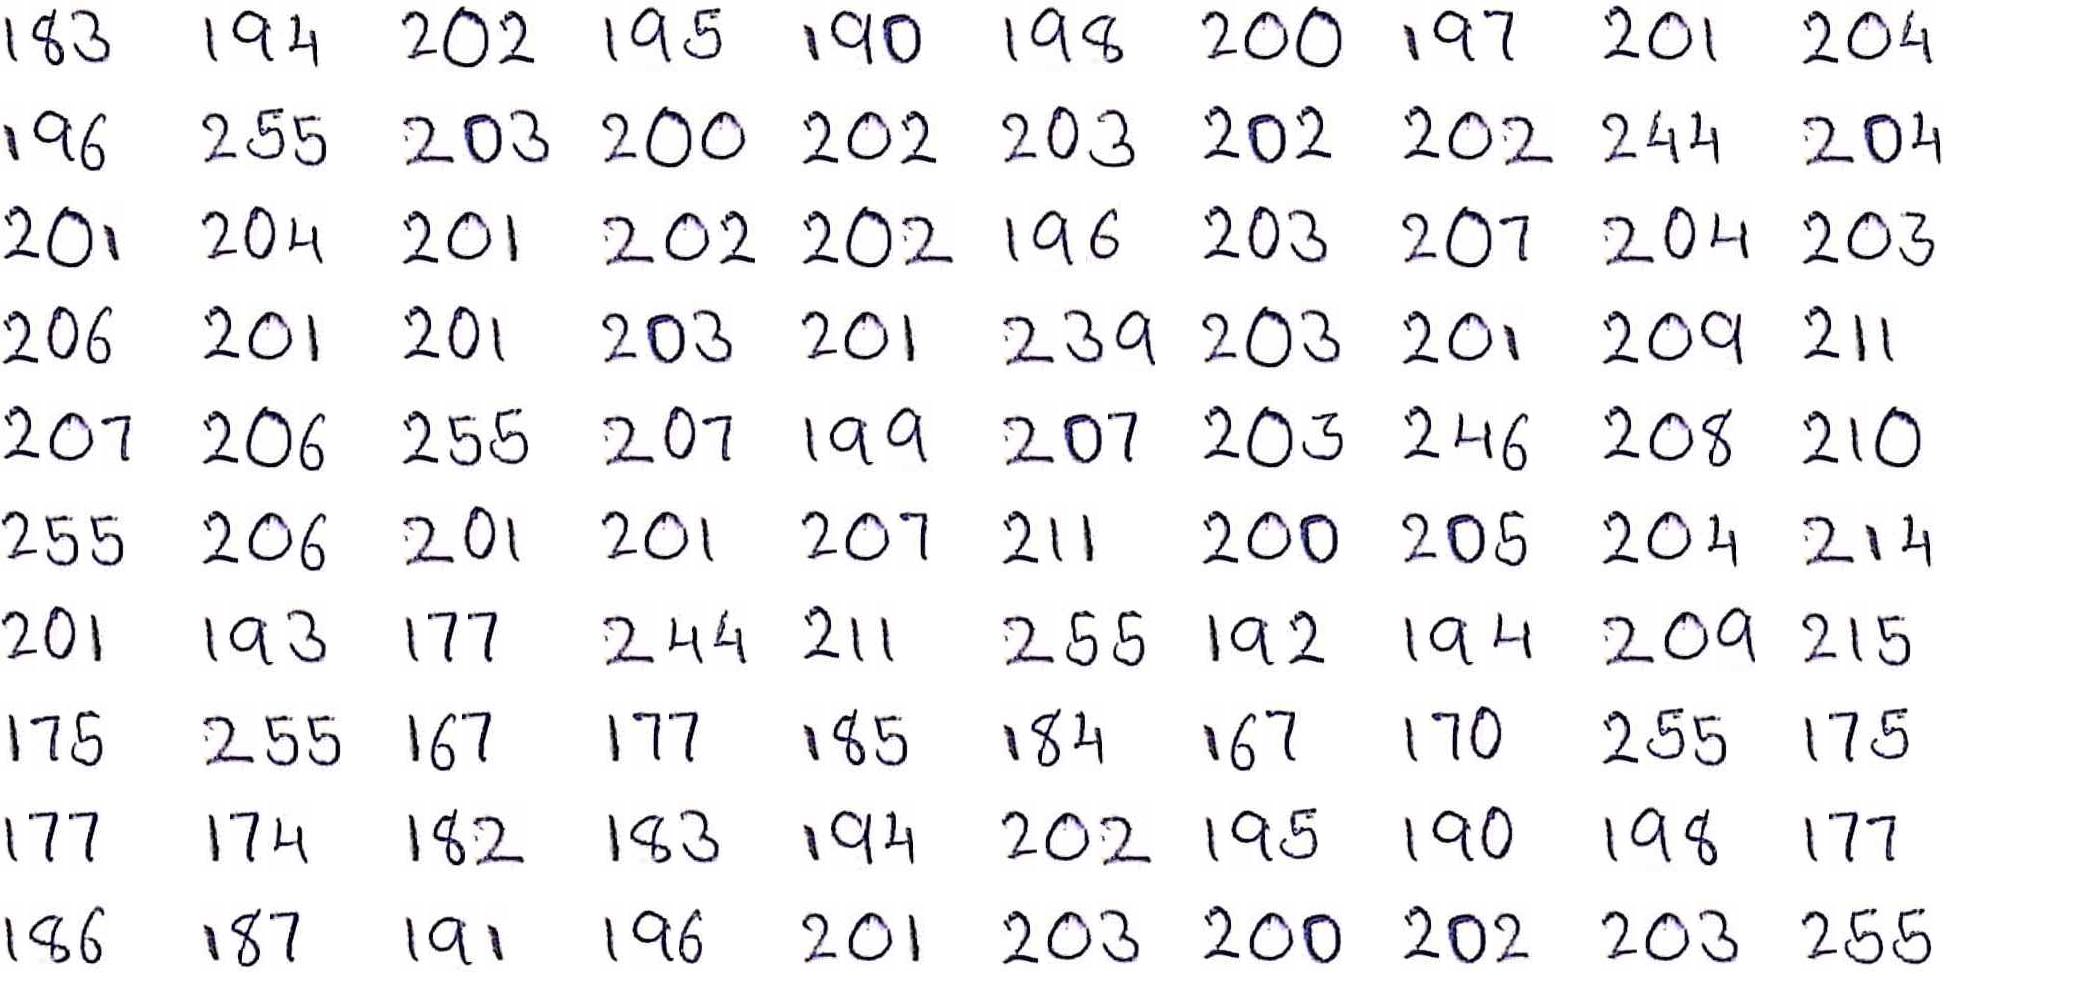 183 194 202 195 190 198 200 197 201 204
196 255 203 200 202 203 202 202 244 204
201 204 201 202 202 196 203 207 204 203
206 201 201 203 201 239 203 201 209 211
207 206 255 207 199 207 203 246 208 210
255 206 201 201 207 211 200 205 204 214
201 193 177 244 211 255 192 194 209 215
175 255 167 177 185 184 167 170 255 175
177 174 182 183 194 202 195 190 198 177
186 187 191 196 201 203 200 202 203 255